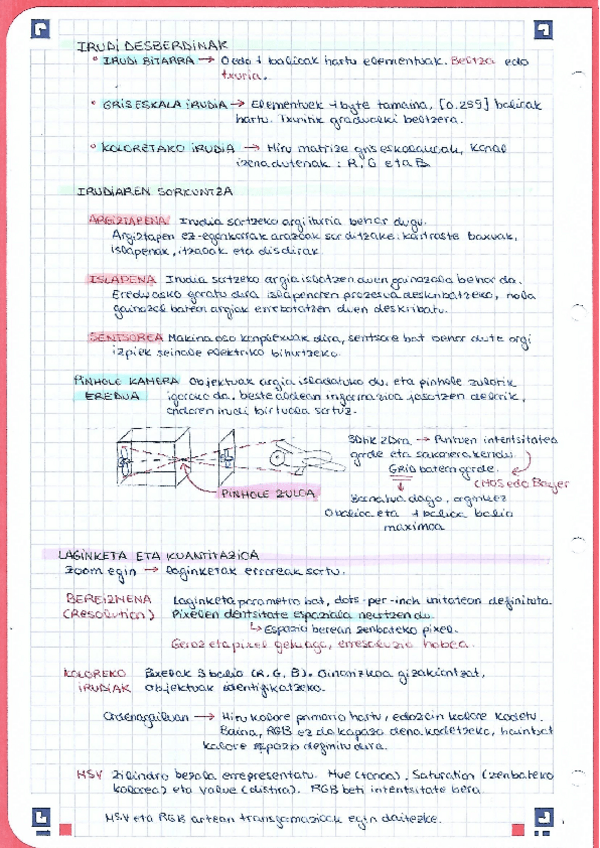 IRUDI DESBERDINAK
• IRUDI BITARRA → 0 edo 1 balioak hartu elementuak. Beltza edo
txuria.
• GRIS ESKALA IRUDIA → Elementuek 1 byte tamaina, [0.255] balioak
hartu. Txuritik gradualki beltzera.
• KOLORETAKO IRUDIA → Hiru matrize gris eskalakoak, kanal
izena dutenak: R, G eta B.
IRUDIAREN SORKUNTZA
ARGIZTAPENA Irudia sortzeko argi iturria behar dugu.
Argiztapen ez-egokiak arazoak sor ditzake. kontraste baxuak,
islapenak, itzalak eta disdirak.
ISLAPENA Irudia sortzeko argia islatzen duen gainazala behar da.
Eredu asko garatu dira islapenaren prozesua deskribatzeko, nola
gainazal batean argiak errebotatzen duen deskribatu.
SENTSOREA Makina oso konplexuak dira, sentsore bat behar dute argi
izpiek seinale elektriko bihurtzeko.
PINHOLE KAMERA Objektuak argia isladatuko du, eta pinhole zulotik
EREDUA igaroko da, beste aldean informazioa jasotzen delarik,
ondoren irudi birtuala sortuz.
3Dtik 2Dra → Puntuen intentsitatea
gorde eta sakonera kendu.
GRID batean gorde.
CMOS edo Bayer
PINHOLE ZULOA
Bornatua dago, argi
0 balioa eta 1 balioa balio
maximoa
LAGINKETA ETA KUANTITAZIOA
Zoom egin → laginketak erroreak sortu.
BEREIZMENA Laginketa parametro bat, dots-per-inch unitatean definituta.
(Resolution) Pixelen dentsitate espaziala neurtzen du.
↳ Espazio berean zenbateko pixel.
Geroz eta pixel gehiago, erresoluzio hobea.
KOLOREKO Pixelak 3 balio (R, G, B). Oinarrizkoa gizakiontzat,
IRUDIAK objektuak identifikatzeko.
Ordenagailuan → Hiru kolore primario hartu, edozein kolore kodetu.
Baina, RGB ez da kapaza dena kodetzeko, hainbat
kolore espazio definitu dira.
HSV Zilindro bezala errepresentatu. Hue (tonoa), Saturation (zenbateko
kolorea) eta Value (distira). RGB beti intentsitate bera.
HSV eta RGB artean transformazioak egin daitezke.